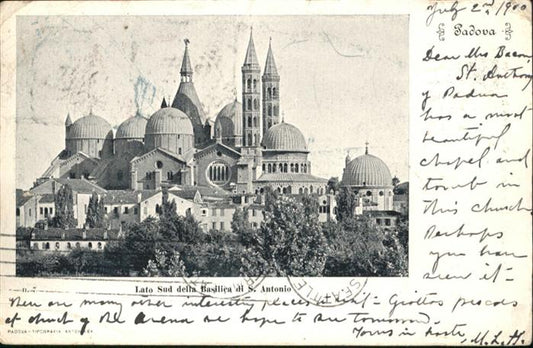 July 2nd 1900
Padova
Dear Mrs Bacon,
St. Anthony
of Padua
has a most
beautiful
chapel and
tomb in
this church
Perhaps
you have
seen it -
Lato Sud della Basilica di S. Antonio
SEATTLE
There are many other interesting places to visit - Giottos frescoes
at church of the Arena we hope to see tomorrow.
Yours in haste, M. L. H.
PADOVA - TIPOGRAFIA